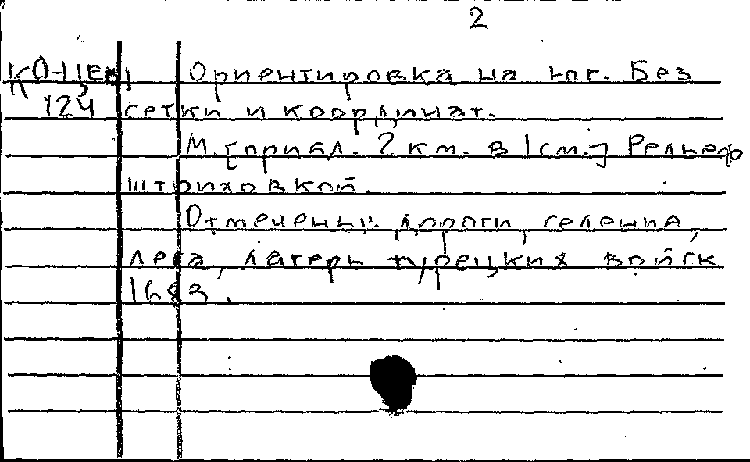 2
КО-ЦЕН/ Ориентировка на юг. Без
124 сетки и координат.
М. [прибл. 2 км. в 1 см.] Рельеф
штриховкой.
Отмечены: дороги, селения,
леса, лагерь турецких войск
1683.